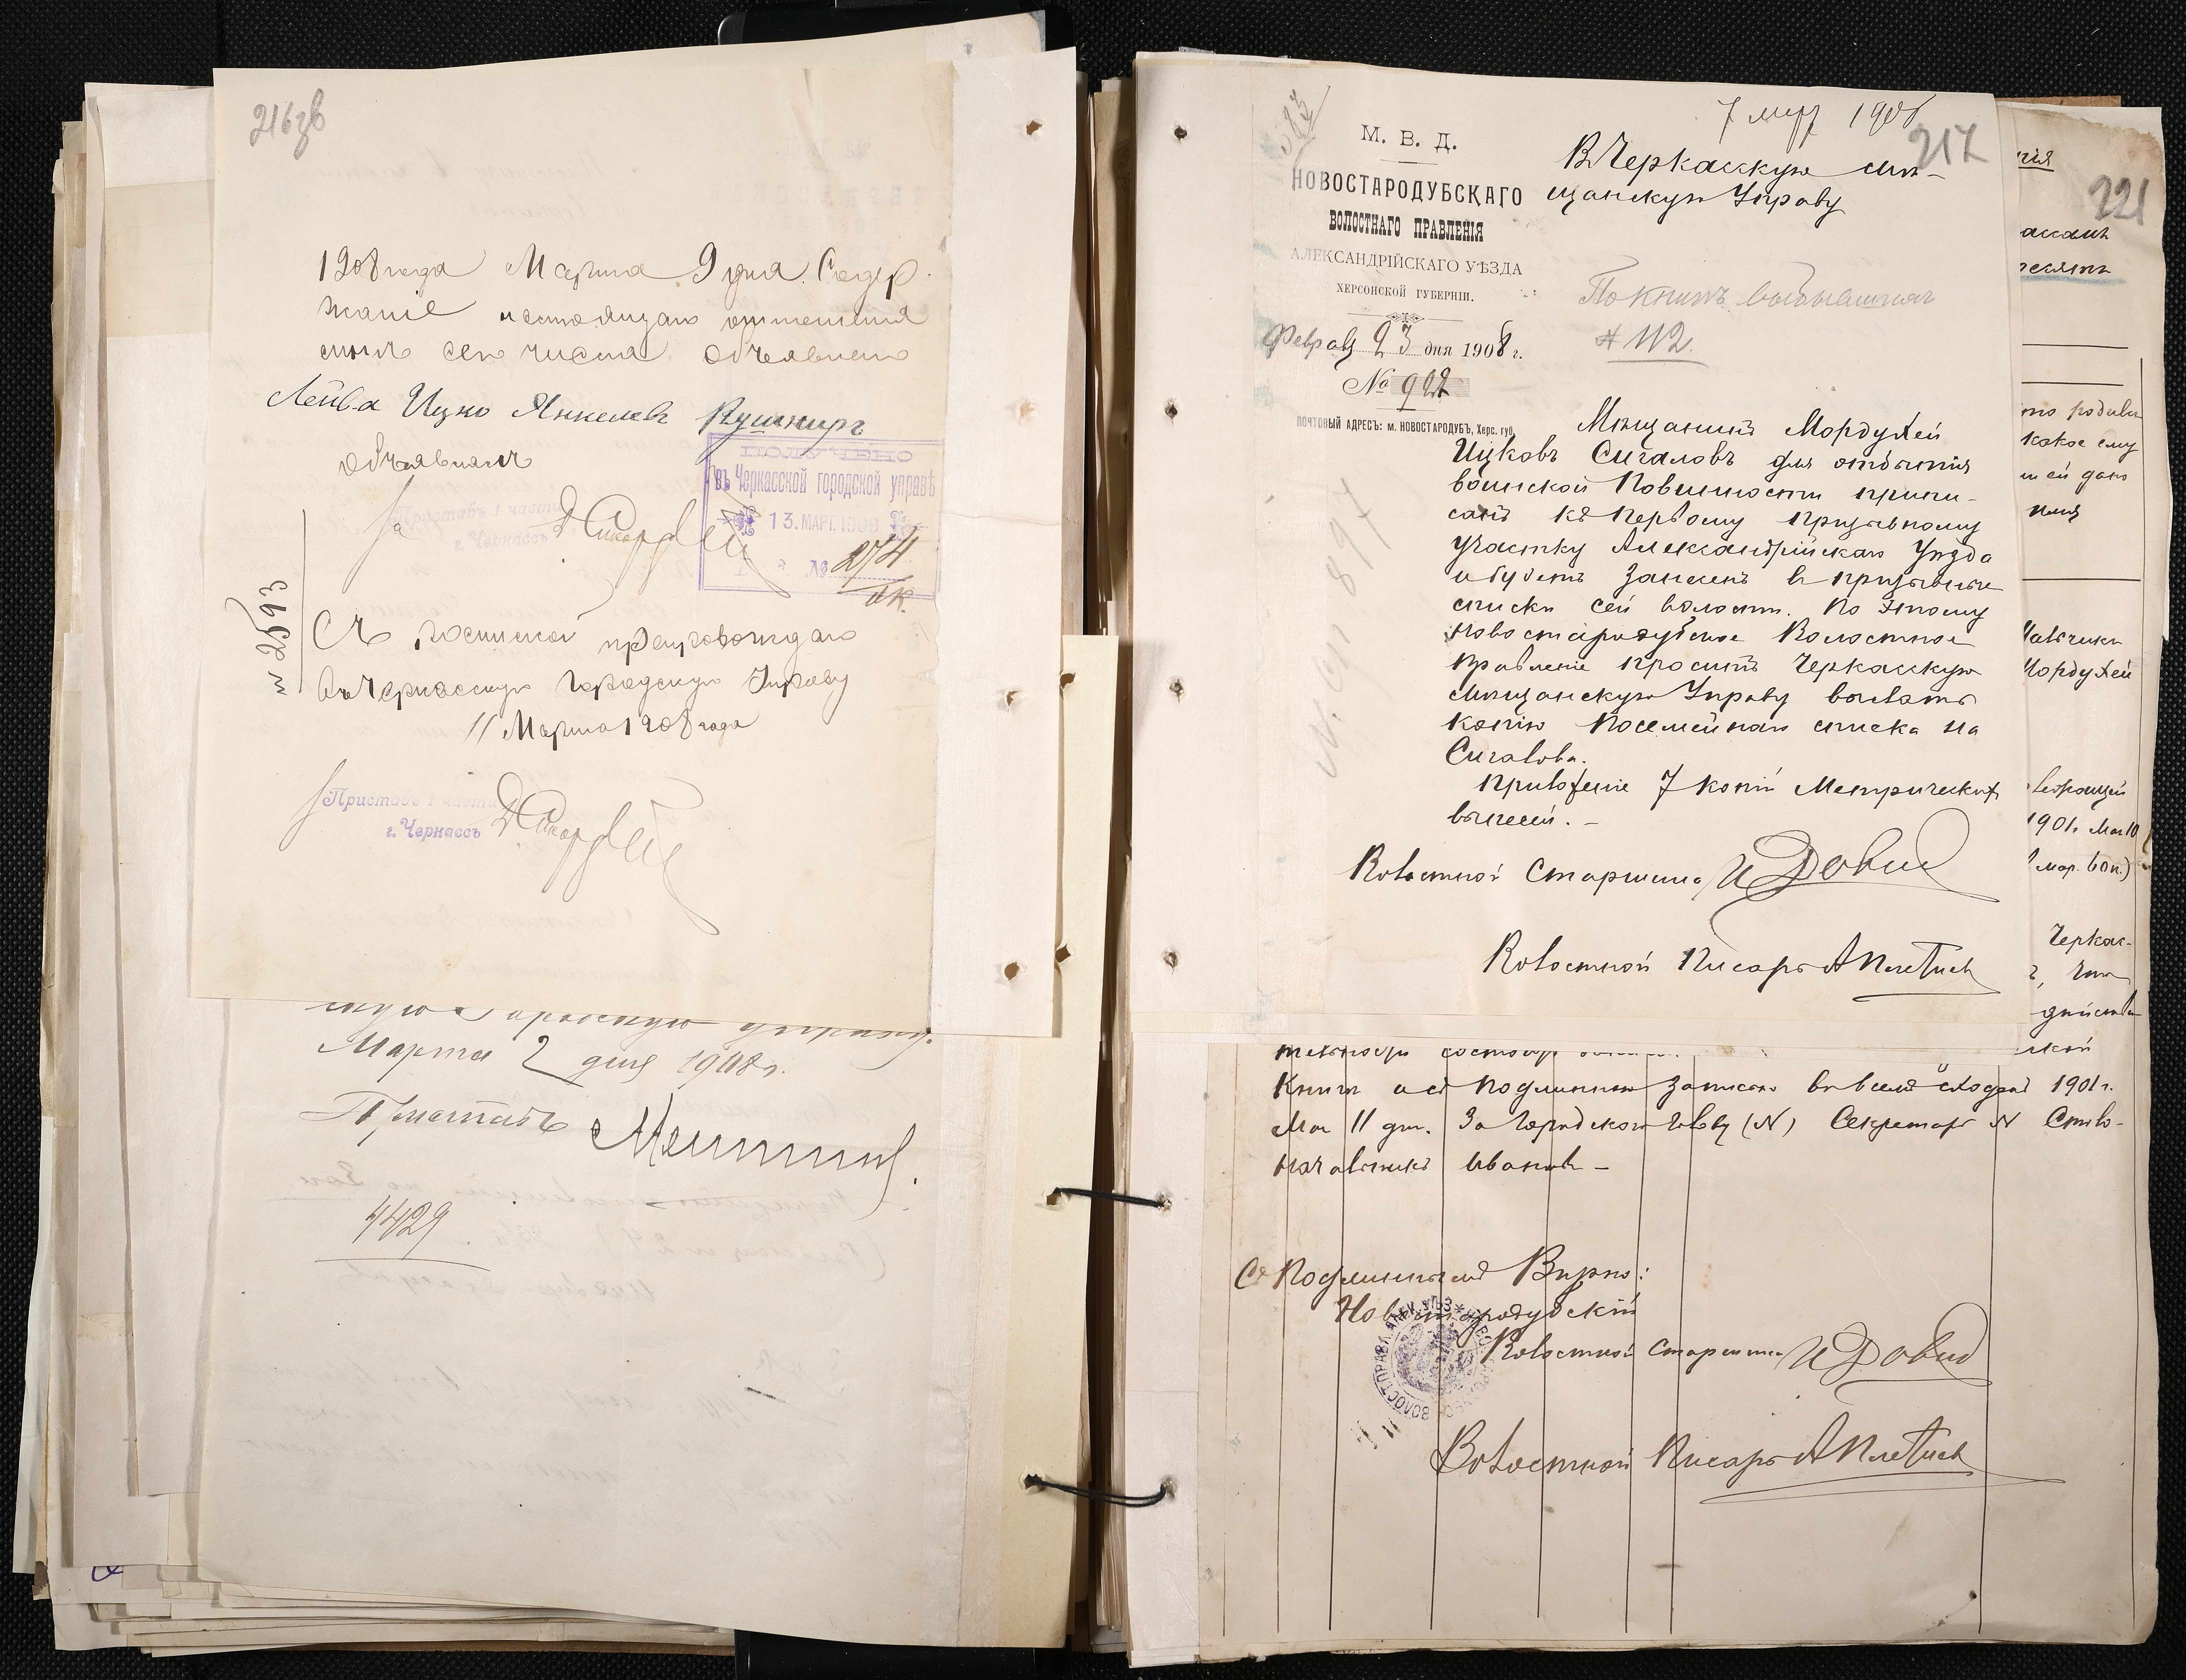 216зв
1908 года Марта 9 дня. Содер-
жание настоящаго отношения
мною сего числа объявлено
Лейба Ицко Янкелевъ Кушниръ
Объявилъ
Приставъ 1 части
г. Черкассъ
ПОЛУЧЕНО
Въ Черкасской городской управѣ
13. МАРТ. 1908
№ 274
№ 2593
Съ роспиской препровождаю
въ Черкасскую Городскую Управу
11 Марта 1908 года
Приставъ 1 части
г. Черкассъ
Марта 2 дня 1908 г.
Приставъ
4429
7 мар 1908
217
М. В. Д.
НОВОСТАРОДУБСКАГО
ВОЛОСТНАГО ПРАВЛЕНІЯ
АЛЕКСАНДРІЙСКАГО УѢЗДА
ХЕРСОНСКОЙ ГУБЕРНІИ.
Феврал 23 дня 1908 г.
№ 902
ПОЧТОВЫЙ АДРЕСЪ: м. НОВОСТАРОДУБЪ, Херс. губ.
В Черкасскую мѣ-
щанскую Управу
# 112.
Мѣщанинъ Мордухей
Ицковъ Сигаловъ для отбытія
воинской Повинности припи-
санъ къ Первому призывному
участку Александрійскаго Уѣзда
и будетъ занесенъ в призывные
списки сей волости. По этому
Новостародубское Волостное
Правленіе проситъ Черкасскую
мѣщанскую Управу выслать
копію Посемейнаго списка на
Сигалова.
Приложеніе 7 копій Метрическихъ
выписей. –
Волостной Старшина И Довід
Волостной Писарь
221
Мордухей
1901 г. Мая 10
Черкас-
Книги и съ подлинною записью во всемъ сходна 1901 г.
Мая 11 дня. За Городского Голову (N) Секретарь N Столо-
начальникъ Ивановъ –
Съ Подлиннымъ Вѣрно:
Новостародубскій
Волостной Старшина И Довід
Волостной Писарь